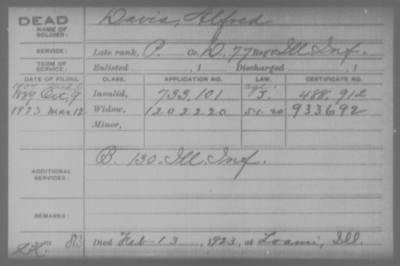 DEAD
NAME OF SOLDIER:
Davis, Alfred
SERVICE:
Late rank, P. Co. D, 77 Reg't Ill. Inf.
TERM OF SERVICE:
Enlisted , 1 Discharged , 1
DATE OF FILING. CLASS. APPLICATION NO. LAW. CERTIFICATE NO.
Oct. 9 Invalid, 733,101 J. 488,912
1923 Mar 12 Widow, 1202220 5-1-20 933692
Minor,
ADDITIONAL SERVICES:
B. 130. Ill. Inf.
REMARKS:
Died Feb 13, 1923, at Loami, Ill.